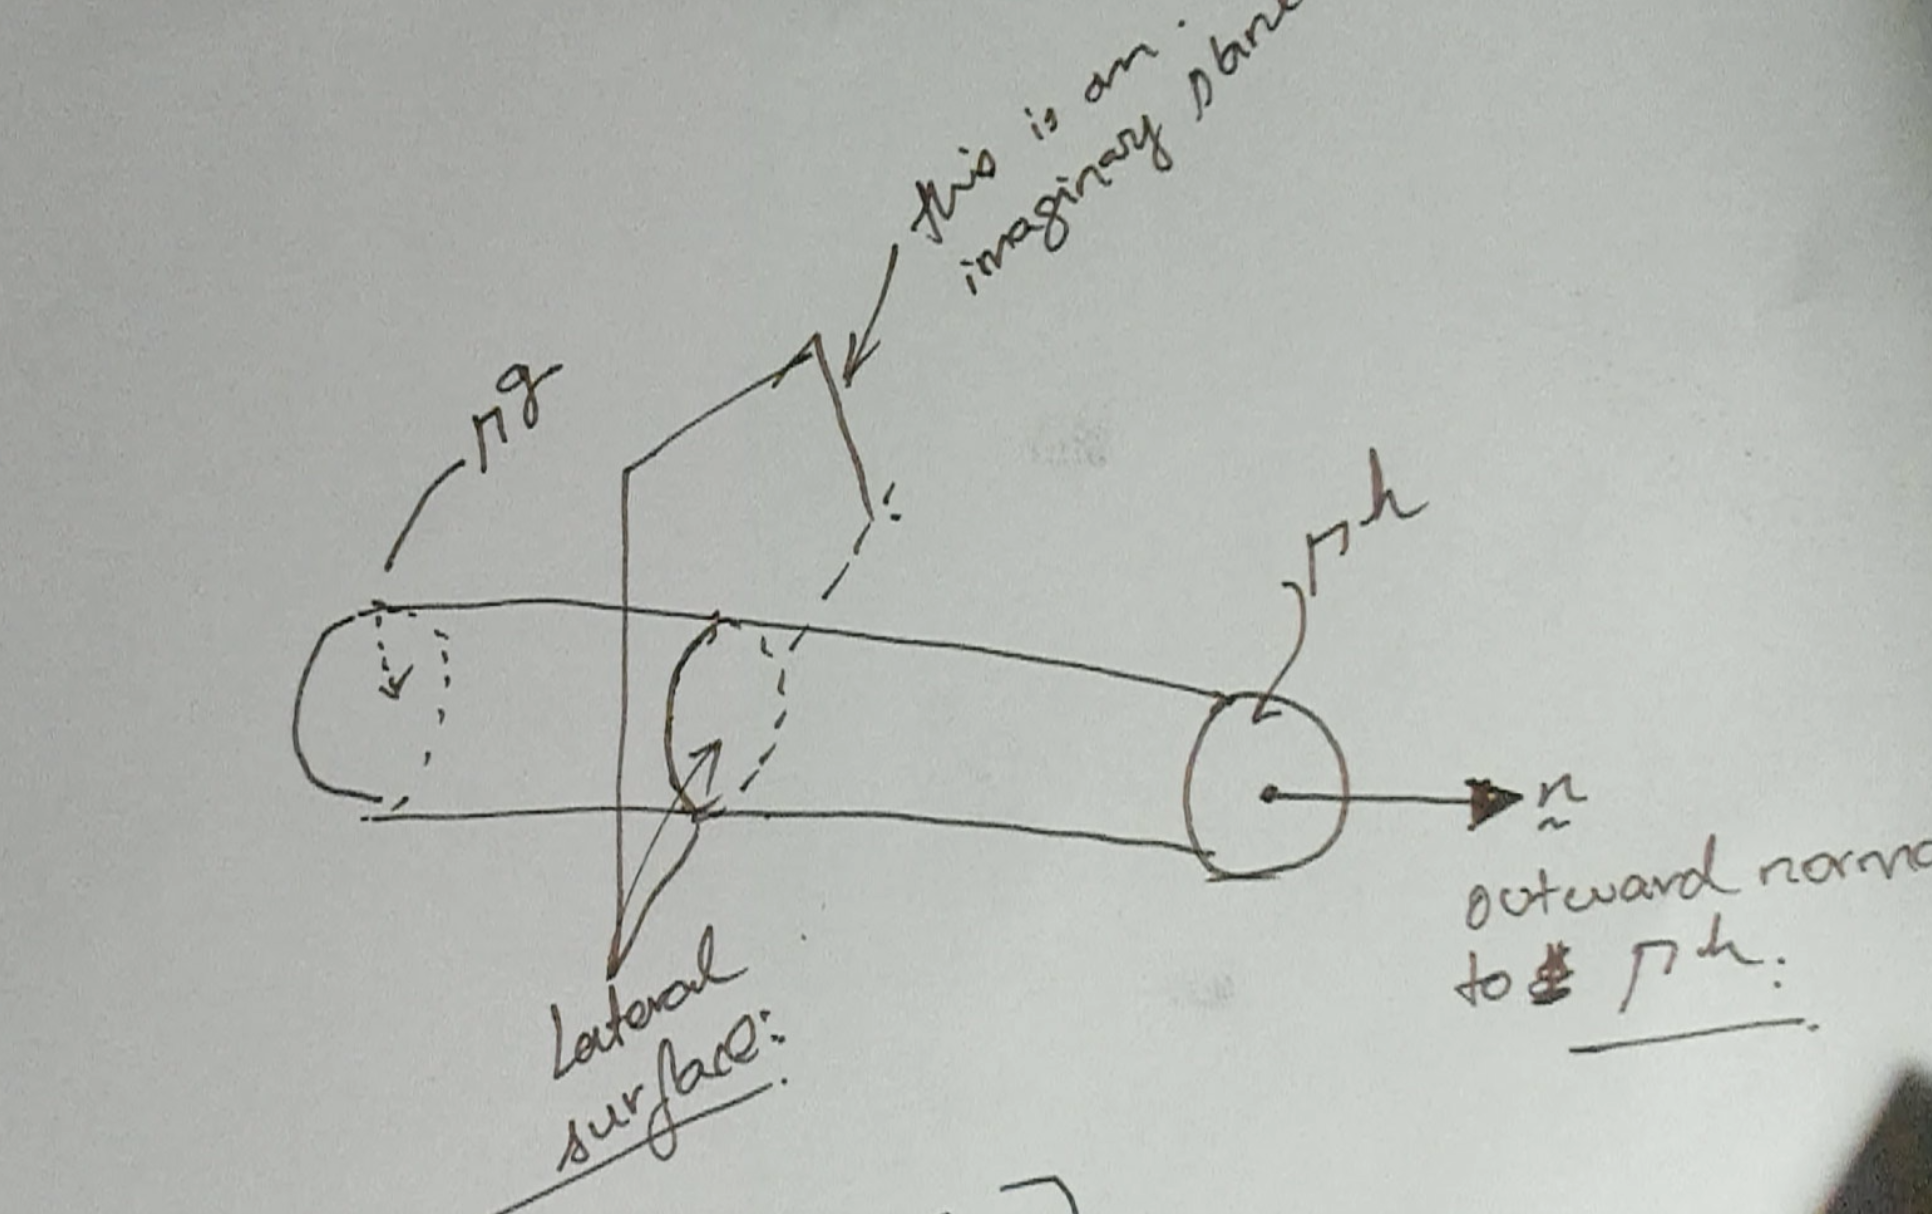 this is an
imaginary
Γg
Γh
n
outward
to Γh.
Lateral
surface: